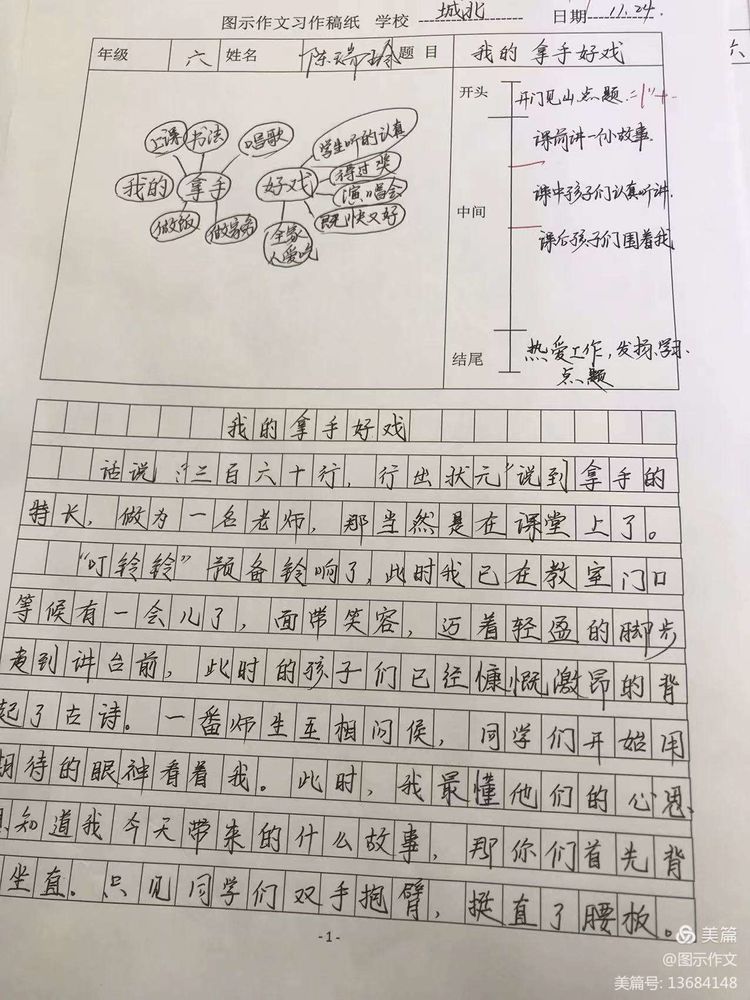 图示作文习作稿纸 学校 城北 日期 11.24
年级 六 姓名 陈瑞玲 题目 我的拿手好戏
上课 书法 唱歌
我的 拿手
做饭 做家务
好戏
学生听的认真
得过奖
演唱会
既快又好
全家人爱吃
开头 开门见山点题.
课前讲一小故事.
中间 课中孩子们认真听讲.
课后孩子们围着我
结尾 热爱工作,发扬学习
点题
我的拿手好戏
话说“三百六十行,行出状元”说到拿手的
特长,做为一名老师,那当然是在课堂上了。
“叮铃铃”预备铃响了,此时我已在教室门口
等候有一会儿了,面带笑容,迈着轻盈的脚步
走到讲台前,此时的孩子们已经慷慨激昂的背
起了古诗。一番师生互相问侯,同学们开始用
期待的眼神看着我。此时,我最懂他们的心思、
知道我今天带来的什么故事,那你们首先背
坐直。只见同学们双手抱臂,挺直了腰板。
-1-
美篇
@图示作文
美篇号: 13684148
六